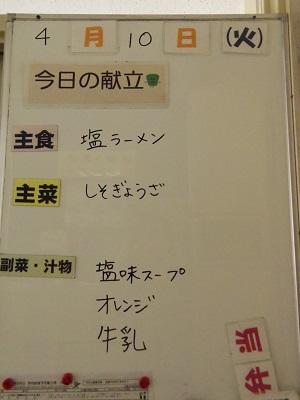 4 月 10 日 (火)
今日の献立
主食 塩ラーメン
主菜 しそぎょうざ
副菜・汁物 塩味スープ
オレンジ
牛乳